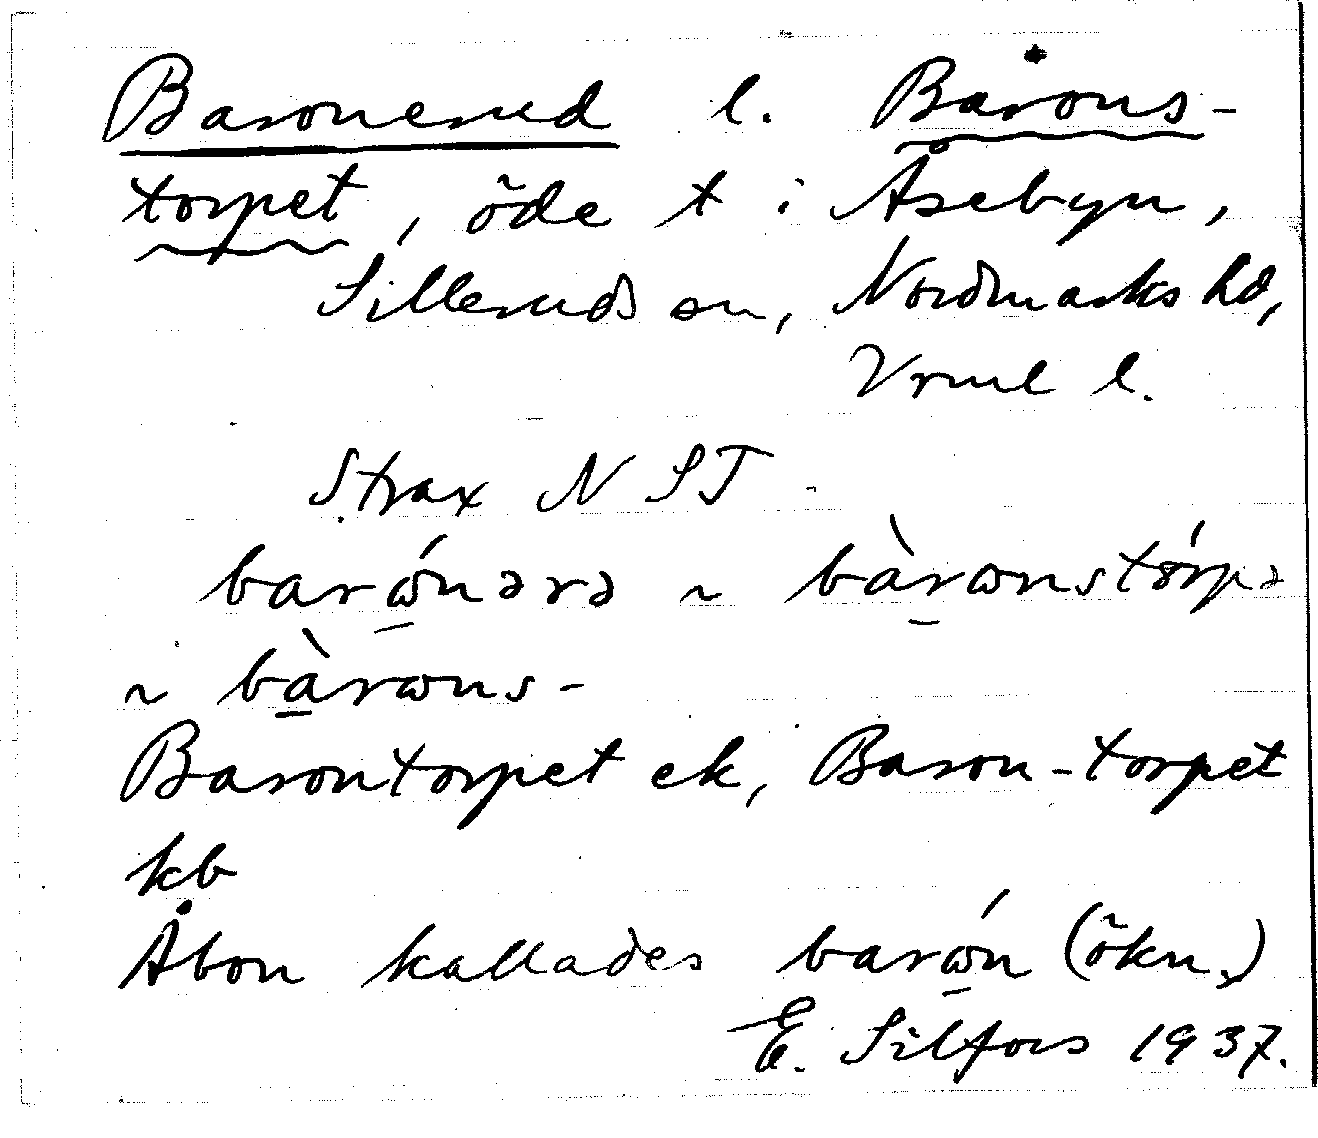 Baronerud l. Barons-
torpet, öde t i Åsebyn,
Silleruds sn, Nordmarks hd,
Vrml l.
Strax N ST
barώ̲nərə ~ bàrω̲nstórpə
~ bà̲rωns-
Barontorpet ek, Baron-torpet
kb
Åbon kallades barώ̲n (ökn.)
E. Silfors 1937.